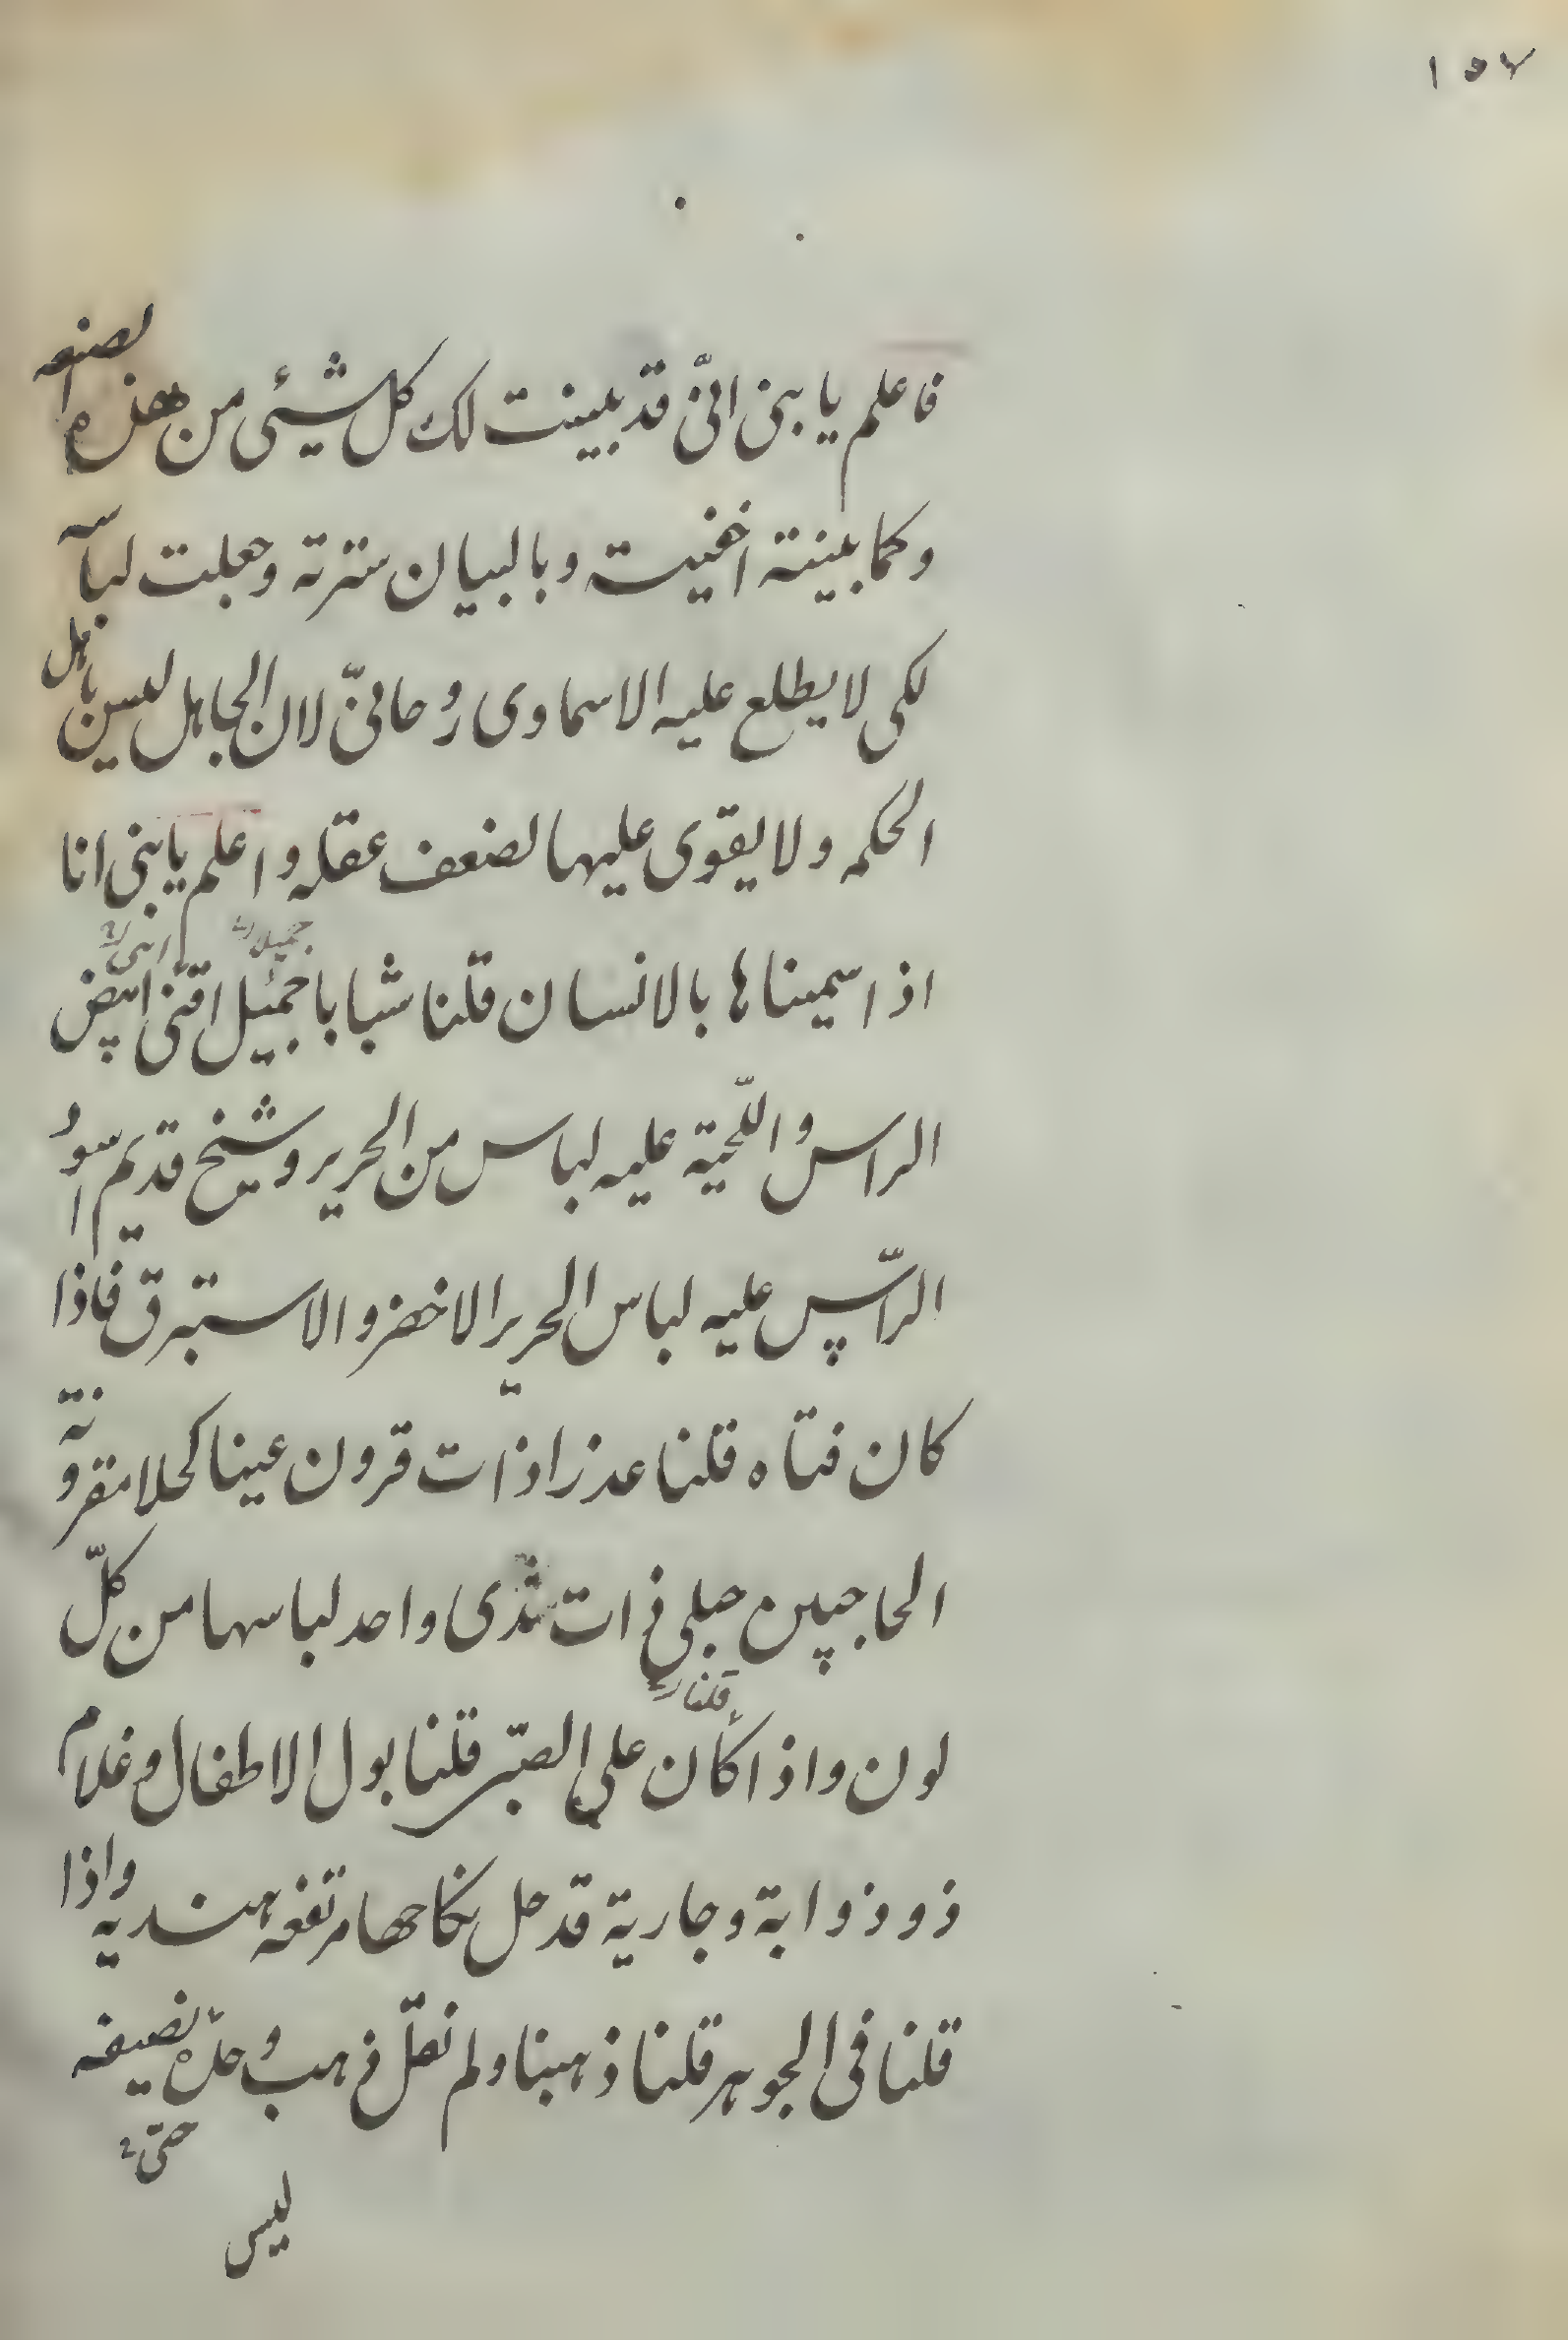 ١٥٧
فاعلم يا بنى انّى قد بينت لك كل شيئى من هذه الصنعه
وكما بينته اخفيته وبالبيان سترته وجعلت لباسه
لكى لا يطلع عليه الا سماوى روحانىّ لان الجاهل ليس باهل
الحكمه ولا يقوى عليها لضعف عقله واعلم يا بنى انا
اذا سميناها بالانسان قلنا شبابا جميل اقنى ابيض
الراس واللّحية عليه لباس من الحرير وشيخ قديم اسود
الرّاس عليه لباس الحرير الاخضر والاستبرق فاذا
كان فتاه قلنا عذرا ذات قرون عينا كحلا مقرونة
الحاجبين حبلى ذات ثدى واحد لباسها من كلّ
قلنا
لون واذا كان على الصبّر قلنا بول الاطفال وغلام
ذو ذوابة وجارية قد حل نكاحها مرتفعه هنديه واذا
قلنا فى الجوهر قلنا ذهبنا ولم نقل ذهب وحده نصيفه
حتى
ليس